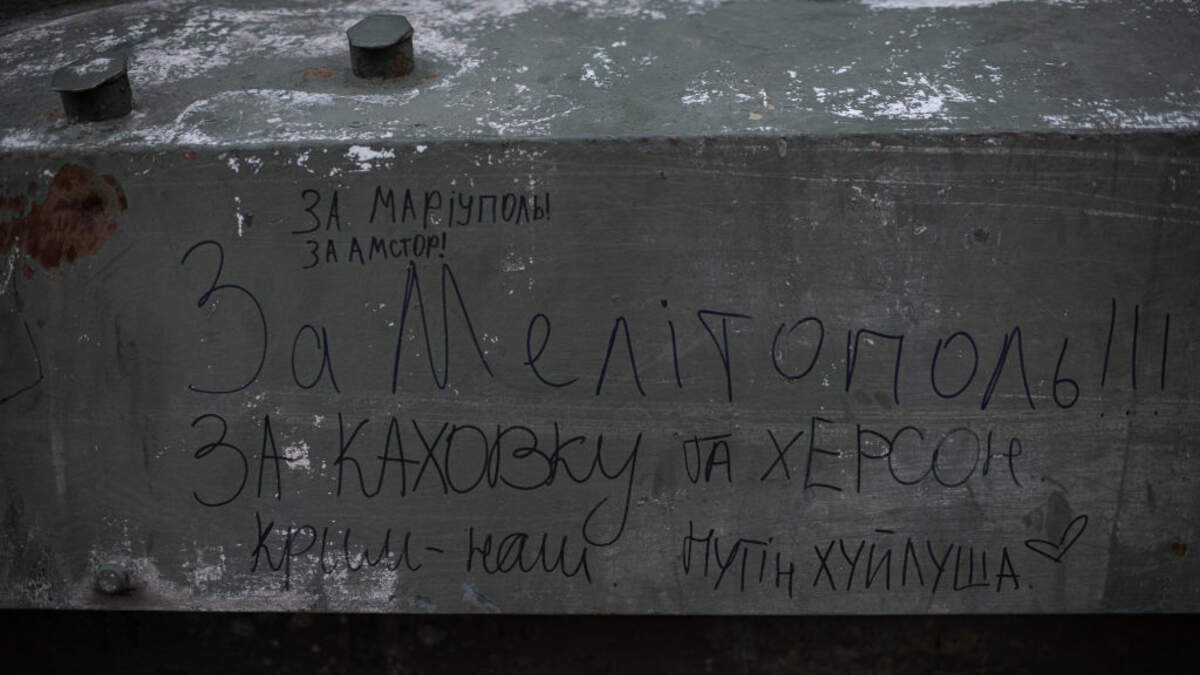 ЗА МАРІУПОЛЬ!
ЗА АМСТОР!
За Мелітополь!!!
ЗА КАХОВКУ та ХЕРСОН.
Крим - наш. Путін ХУЙЛУША.